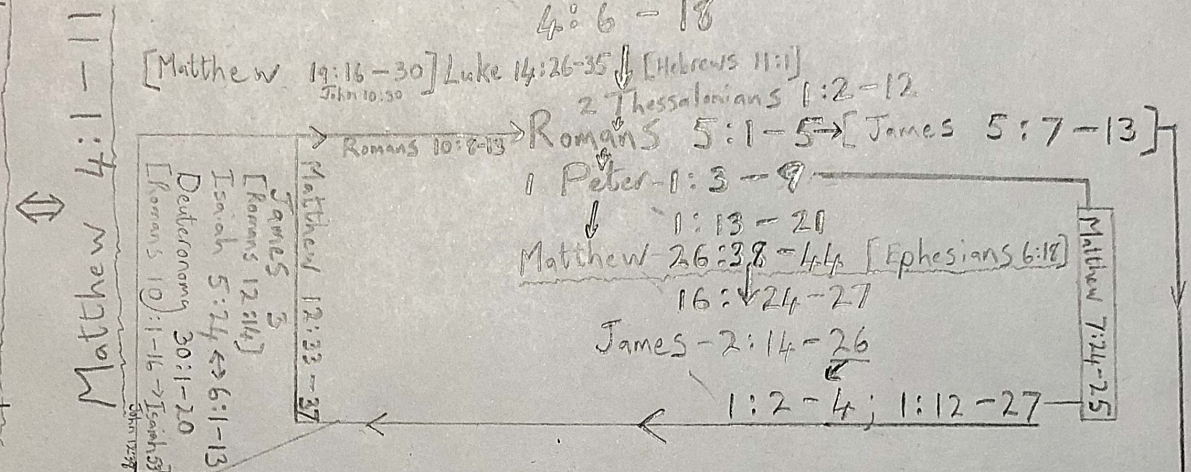 4:6-18
[Matthew 19:16-30] Luke 14:26-35 [Hebrews 11:1]
John 10:30
2 Thessalonians 1:2-12
Romans 10:8-13 Romans 5:1-5 → [James 5:7-13]
1 Peter-1:3-9
1:13-21
Matthew 26:38-44 [Ephesians 6:18]
16:24-27
James-2:14-26
1:2-4; 1:12-27
Matthew 7:24-25
Matthew 12:33-37
James 3
[Romans 12:14]
Isaiah 5:24 ↔ 6:1-13
Deuteronomy 30:1-20
[Romans 10]:1-16 → Isaiah 53
Matthew 4:1-11